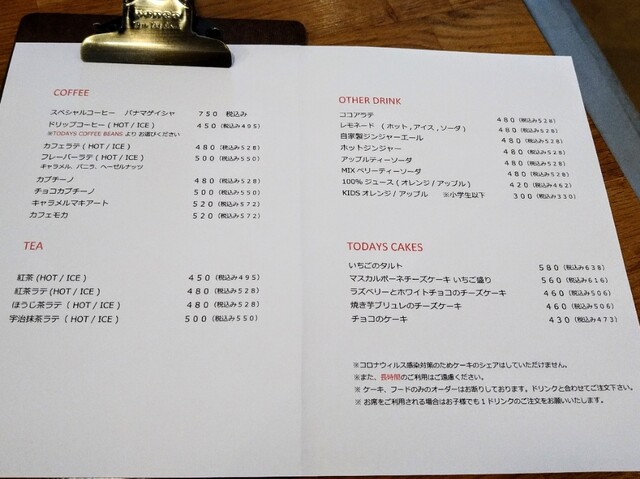 COFFEE
スペシャルコーヒー パナマゲイシャ 750 税込み
ドリップコーヒー ( HOT / ICE ) 450 (税込み495)
※TODAYS COFFEE BEANS より お選びください
カフェラテ ( HOT / ICE ) 480 (税込み528)
フレーバーラテ ( HOT / ICE ) 500 (税込み550)
キャラメル、バニラ、ヘーゼルナッツ
カプチーノ 480 (税込み528)
チョコカプチーノ 500 (税込み550)
キャラメルマキアート 520 (税込み572)
カフェモカ 520 (税込み572)
TEA
紅茶 (HOT / ICE ) 450 (税込み495)
紅茶ラテ (HOT / ICE ) 480 (税込み528)
ほうじ茶ラテ ( HOT / ICE ) 480 (税込み528)
宇治抹茶ラテ ( HOT / ICE ) 500 (税込み550)
OTHER DRINK
ココアラテ 480 (税込み528)
レモネード ( ホット , アイス , ソーダ ) 480 (税込み528)
自家製ジンジャーエール 480 (税込み528)
ホットジンジャー 480 (税込み528)
アップルティーソーダ 480 (税込み528)
MIX ベリーティーソーダ 480 (税込み528)
100% ジュース ( オレンジ / アップル ) 420 (税込み462)
KIDS オレンジ / アップル ※小学生以下 300 (税込み330)
TODAYS CAKES
いちごのタルト 580 (税込み638)
マスカルポーネチーズケーキ いちご盛り 560 (税込み616)
ラズベリーとホワイトチョコのチーズケーキ 460 (税込み506)
焼き芋ブリュレのチーズケーキ 460 (税込み506)
チョコのケーキ 430 (税込み473)
※コロナウィルス感染対策のためケーキのシェアはしていただけません。
※また、長時間のご利用はご遠慮ください。
※ ケーキ、フードのみのオーダーはお断りしております。ドリンクと合わせてご注文下さい。
※ お席をご利用される場合はお子様でも1ドリンクのご注文をお願いいたします。